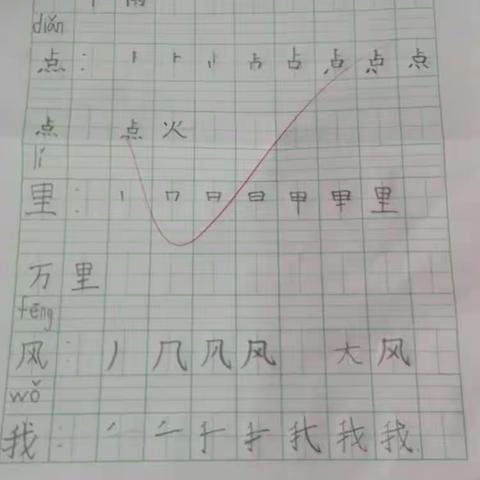 diǎn
点：丶 卜 占 占 点 点 点
点 点火
lǐ
里：丨 冂 日 日 甲 甲 里
万里
fēng
风：丿 几 凡 风 大风
wǒ
我：丿 二 于 手 我 我 我